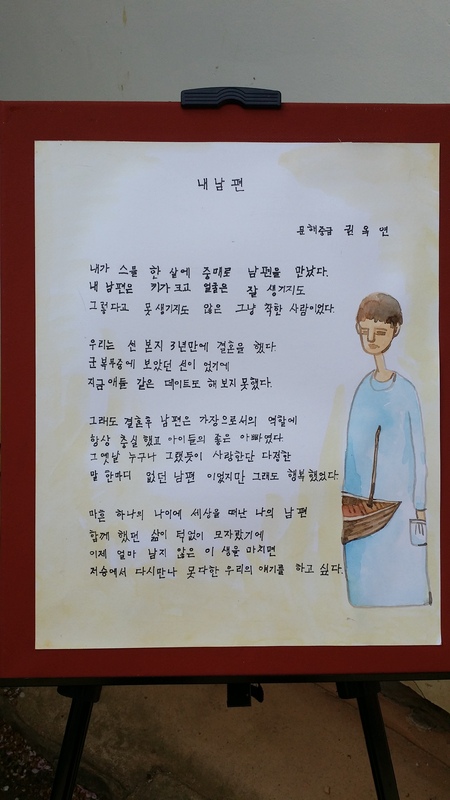 내 남 편
문해중급 권옥연
내가 스물 한 살에 중매로 남편을 만났다.
내 남편은 키가 크고 얼굴은 잘 생기지도
그렇다고 못생기지도 않은 그냥 착한 사람이었다.
우리는 선 본지 3년만에 결혼을 했다.
군복무중에 보았던 선이 었기에
지금 애들 같은 데이트도 해 보지 못했다.
그래도 결혼후 남편은 가장으로서의 역할에
항상 충실했고 아이들의 좋은 아빠였다
그옛날 누구나 그랬듯이 사랑한단 다정한
말 한마디 없던 남편 이었지만 그래도 행복했었다.
마흔 하나의 나이에 세상을 떠난 나의 남편
함께 했던 삶이 턱없이 모자랐기에
이제 얼마 남지 않은 이 생을 마치면
저승에서 다시만나 못다한 우리의 얘기를 하고 싶다.